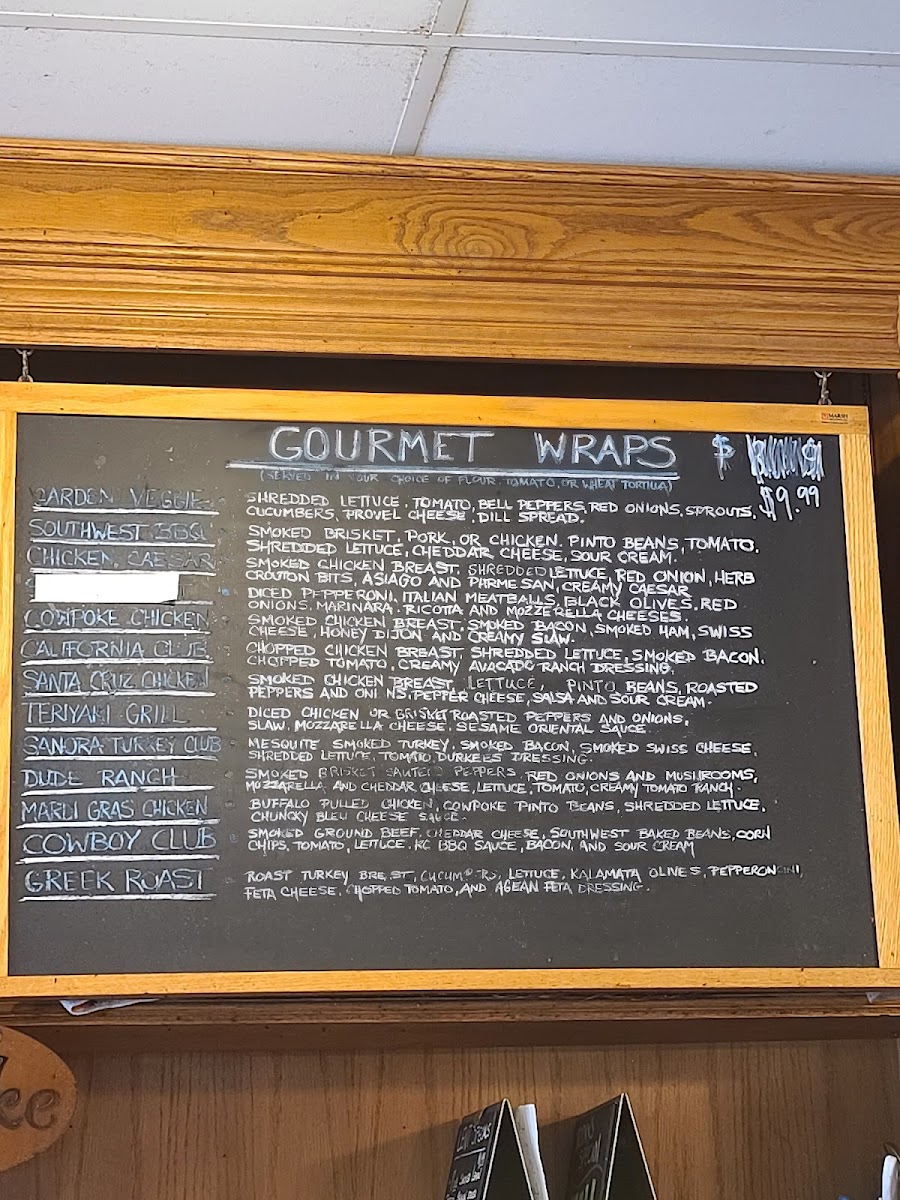 MARSH
GOURMET WRAPS $
(SERVED IN YOUR CHOICE OF FLOUR, TOMATO, OR WHEAT TORTILLA)
$9.99
GARDEN VEGGIE SHREDDED LETTUCE, TOMATO, BELL PEPPERS, RED ONIONS, SPROUTS,
CUCUMBERS, PROVEL CHEESE, DILL SPREAD.
SOUTHWEST BBQ SMOKED BRISKET, PORK, OR CHICKEN. PINTO BEANS, TOMATO.
SHREDDED LETTUCE, CHEDDAR CHEESE, SOUR CREAM.
CHICKEN CAESAR SMOKED CHICKEN BREAST. SHREDDED LETTUCE, RED ONION, HERB
CROUTON BITS, ASIAGO AND PARMESAN, CREAMY CAESAR
DICED PEPPERONI, ITALIAN MEATBALLS, BLACK OLIVES, RED
ONIONS. MARINARA. RICOTTA AND MOZZERELLA CHEESES.
COWPOKE CHICKEN SMOKED CHICKEN BREAST, SMOKED BACON, SMOKED HAM, SWISS
CHEESE, HONEY DIJON AND CREAMY SLAW.
CALIFORNIA CLUB CHOPPED CHICKEN BREAST, SHREDDED LETTUCE, SMOKED BACON.
CHOPPED TOMATO, CREAMY AVACADO RANCH DRESSING.
SANTA CRUZ CHICKEN SMOKED CHICKEN BREAST, LETTUCE, PINTO BEANS, ROASTED
PEPPERS AND ONI NS, PEPPER CHEESE, SALSA AND SOUR CREAM.
TERIYAKI GRILL DICED CHICKEN OR BRISKET ROASTED PEPPERS AND ONIONS,
SLAW. MOZZARELLA CHEESE. SESAME ORIENTAL SAUCE.
SANORA TURKEY CLUB MESQUITE SMOKED TURKEY, SMOKED BACON, SMOKED SWISS CHEESE,
SHREDDED LETTUCE, TOMATO, DURKEES DRESSING.
DUDE RANCH SMOKED BRISKET SAUTEED PEPPERS, RED ONIONS AND MUSHROOMS,
MOZZARELLA AND CHEDDAR CHEESE, LETTUCE, TOMATO, CREAMY TOMATO RANCH.
MARDI GRAS CHICKEN BUFFALO PULLED CHICKEN, COWPOKE PINTO BEANS, SHREDDED LETTUCE,
CHUNCKY BLEU CHEESE SAUCE.
COWBOY CLUB SMOKED GROUND BEEF, CHEDDAR CHEESE, SOUTHWEST BAKED BEANS, CORN
CHIPS, TOMATO, LETTUCE. KC BBQ SAUCE, BACON, AND SOUR CREAM
GREEK ROAST ROAST TURKEY BREAST, CUCUMBERS, LETTUCE, KALAMATA OLIVES, PEPPERONCINI,
FETA CHEESE, CHOPPED TOMATO, AND AGEAN FETA DRESSING.
ee
SPECIALS